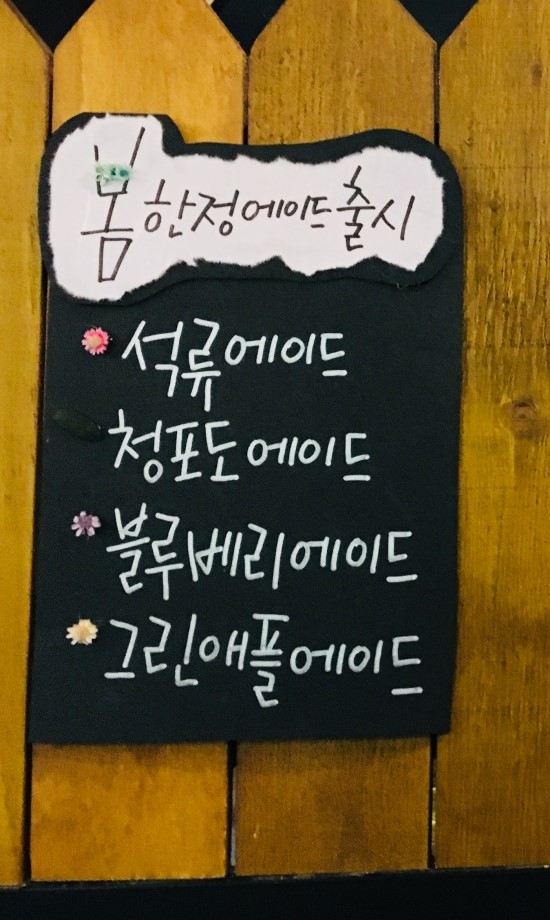 봄 한정 에이드 출시
석류에이드
청포도에이드
블루베리에이드
그린애플에이드